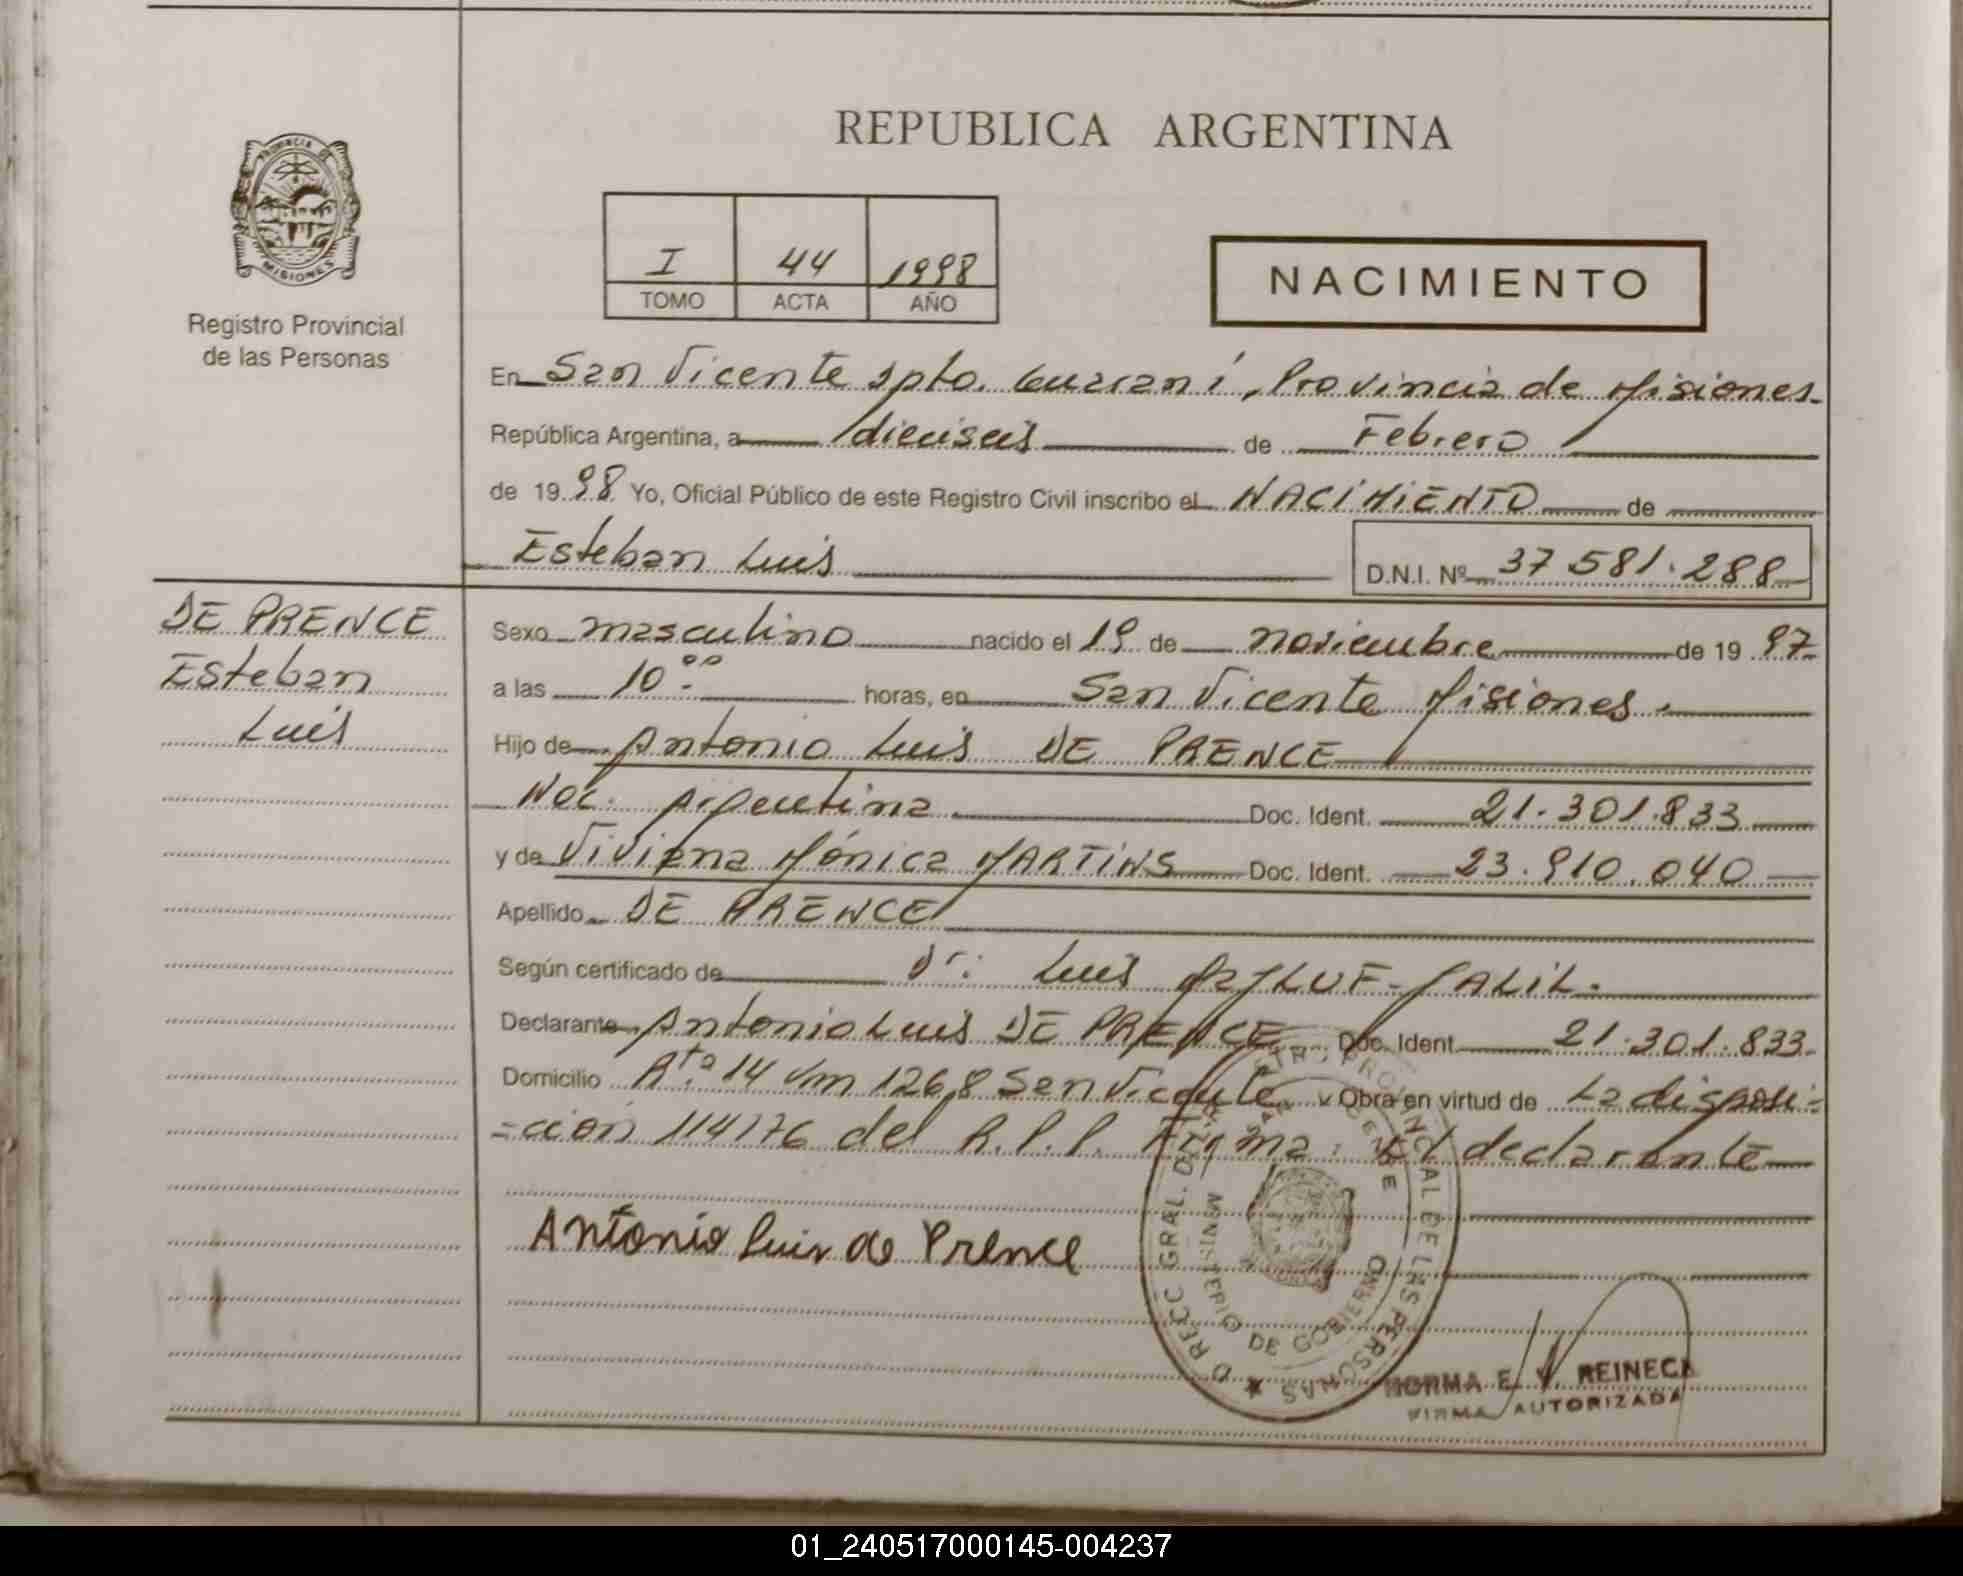 REPUBLICA ARGENTINA
PROVINCIA DE
MISIONES
Registro Provincial
de las Personas
I 44 1998
TOMO ACTA AÑO
NACIMIENTO
En San Vicente Dpto. Guaraní, Provincia de Misiones
República Argentina, a dieciseis de Febrero
de 1998 Yo, Oficial Público de este Registro Civil inscribo el NACIMIENTO de
Esteban Luis D.N.I. Nº 37 581.288
DE PRENCE
Esteban
Luis
Sexo masculino nacido el 19 de noviembre de 1997
a las 10:00 horas, en San Vicente Misiones.
Hijo de Antonio Luis DE PRENCE
Nac. Argentina Doc. Ident. 21.301.833
y de Viviana Mónica MARTINS Doc. Ident. 23.910.040
Apellido DE PRENCE
Según certificado de Dr. Luis JALIL.
Declarante Antonio Luis DE PRENCE Doc. Ident. 21.301.833
Domicilio Rta 14 km 1268 San Vicente Obra en virtud de La disposi=
=ción 114/76 del R.P.P. Firma: El declarante
Antonio Luis de Prence
MINISTERIO DE GOBIERNO
PROVINCIAL DE LAS PERSONAS
NORMA E. V. REINECK
FIRMA AUTORIZADA
01_240517000145-004237